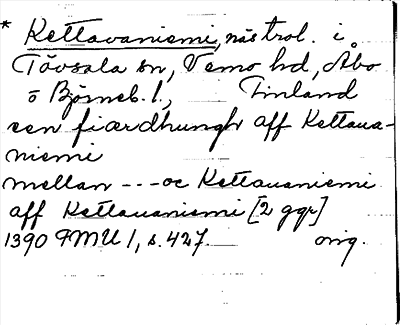 * Kettavaniemi, näs trol. i
Tövsala sn, Vemo hd, Åbo
o Björneb. l., Finland
een fiærdhungh aff Kettaua-
niemi
mellan --- oc Kettauaniemi
aff Kettauaniemi [2 ggr]
1390 FMU 1, s. 427. orig.